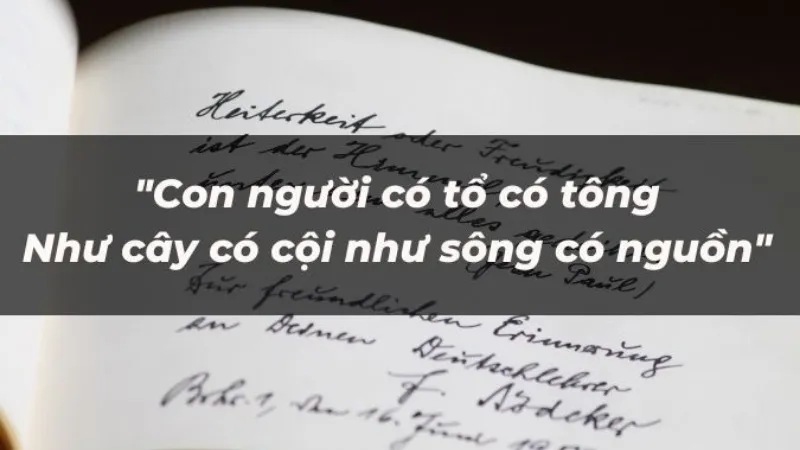 Heiterkeit oder Freudigkeit
ist der Himmel,
"Con người có tổ có tông
alles
Như cây có cội như sông có nguồn"
Paul)
Zur freundlichen Erinnerung
an Deinen Deutschlehrer
F.
den 16. Juni